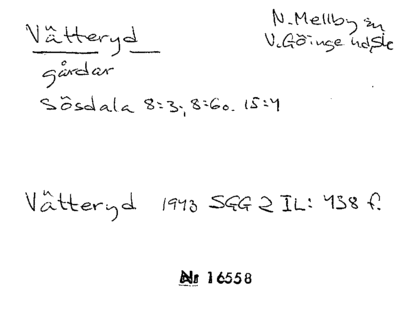 Vätteryd
N. Mellby sn
V. Göinge hd, Sk
gårdar
Sösdala 8:3, 8:60. 15:4
Vätteryd 1943 SGG 2 IL: 438 f.
Nr 16558